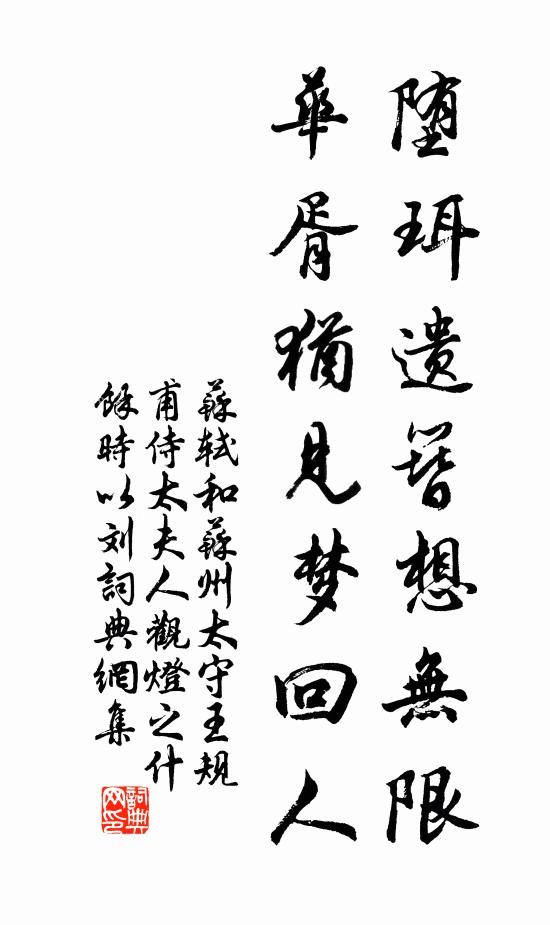 堕珥遗簪想無限
華胥猶见梦回人
蘇轼和蘇州太守王规
甫侍太夫人觀燈之什
餘時以刘詞典網集
詞典網印